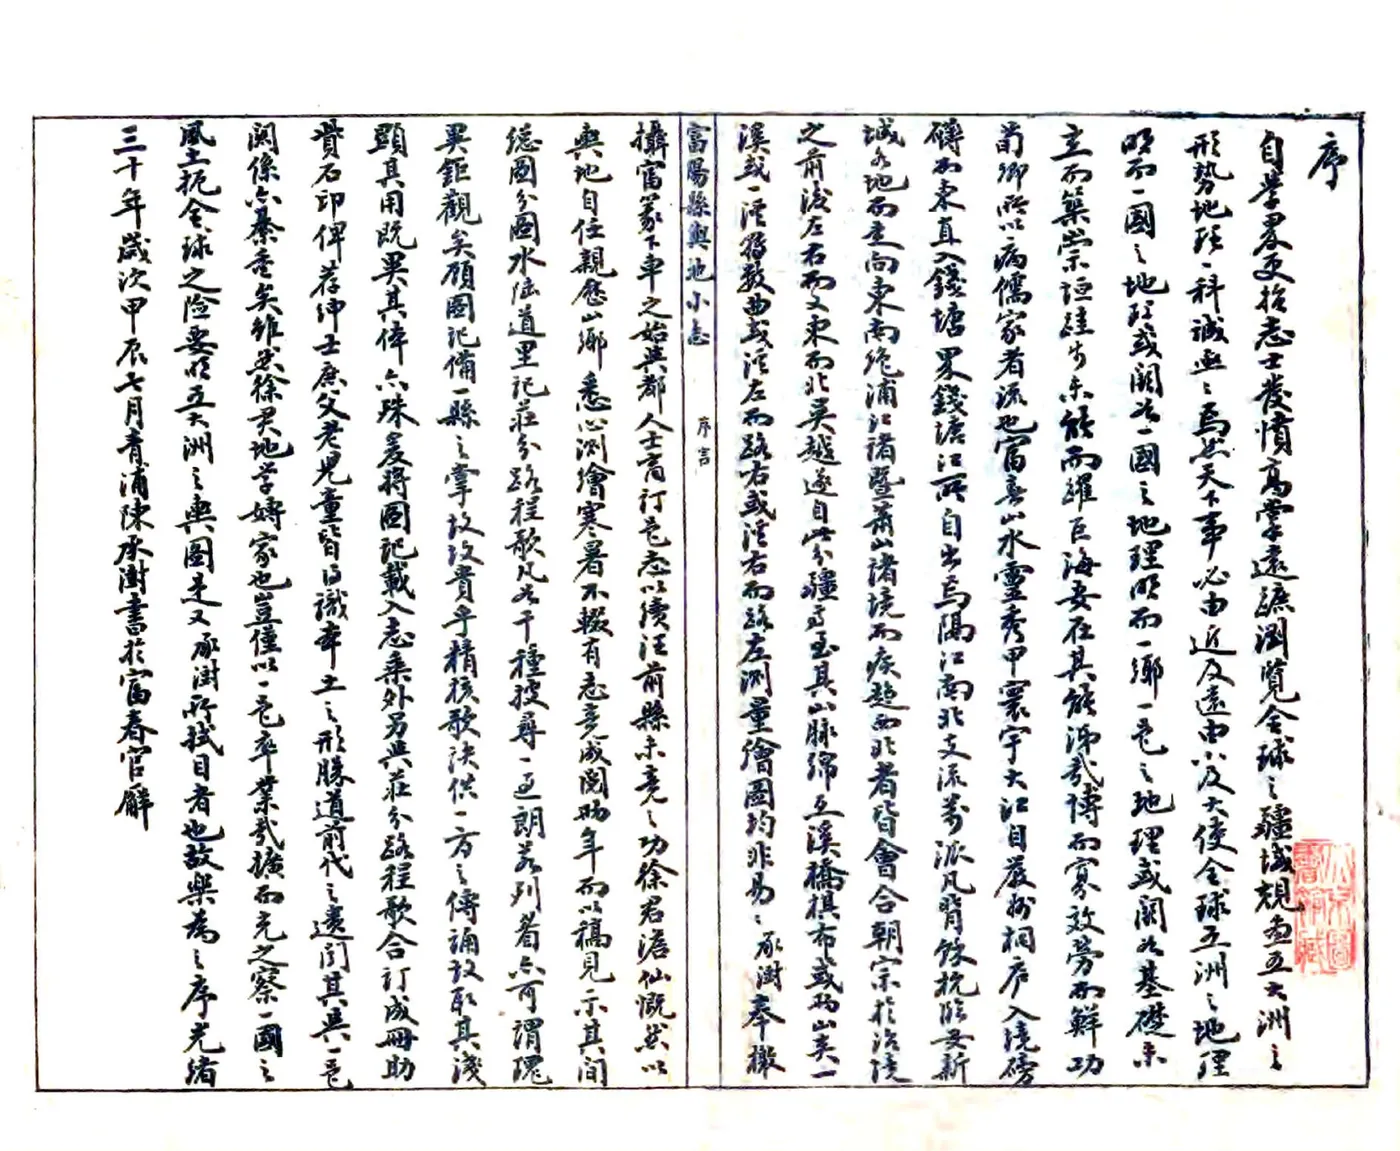 序
自學界更拾志士發憤高掌遠蹠瀏覽全球之疆域規畫五大洲之
形勢地理一科誠亟亟焉然天下事必由近及遠由小及大使全球五洲之地理
明而一國之地理或闕如一國之地理明而一鄉一邑之地理或闕如基礎未
立而築崇垣跬步未能而躍巨海安在其能濟哉博而寡效勞而鮮功
荀卿所以病儒家者流也富春山水靈秀甲寰宇大江自嚴州桐廬入境磅
礡而東直入錢塘界錢塘江所自出焉隔江南北支流萬派凡背餘杭臨安新
城各地而走向東南絶浦江諸暨蕭山諸境而疾趨西北者皆會合朝宗於治境
之前後左右而又東而北吳越遂自此分疆焉至其山脈綿亙溪橋棋布或兩山夾一
溪或一溪得數曲或溪左而路右或溪右而路左測量繪圖均非易易承澍奉檄
富陽縣輿地小志 序言
攝富篆下車之始與都人士商訂邑志以續汪前縣未竟之功徐君澹仙慨然以
輿地自任親歷山鄉悉心測繪寒暑不輟有志竟成閱兩年而以稿見示其間
總圖分圖水陸道里記莊分路程歌凡若干種披尋一過朗若列眉亦可謂瑰
異鉅觀矣顧圖記備一縣之掌故故貴乎精核歌訣供一方之傳誦故取其淺
顯其用既異其体亦殊爰將圖記載入志乘外另與莊分路程歌合訂成冊助
貲石印俾荐紳士庶父老兒童皆得識本土之形勝道前代之遺聞其與一邑
関係亦綦重矣雖然徐君地学專家也豈僅以一邑卒業哉擴而充之察一國之
風土扼全球之險要明五大洲之輿圖是又承澍所拭目者也故樂為之序光緒
三十年歲次甲辰七月青浦陳承澍書於富春官廨